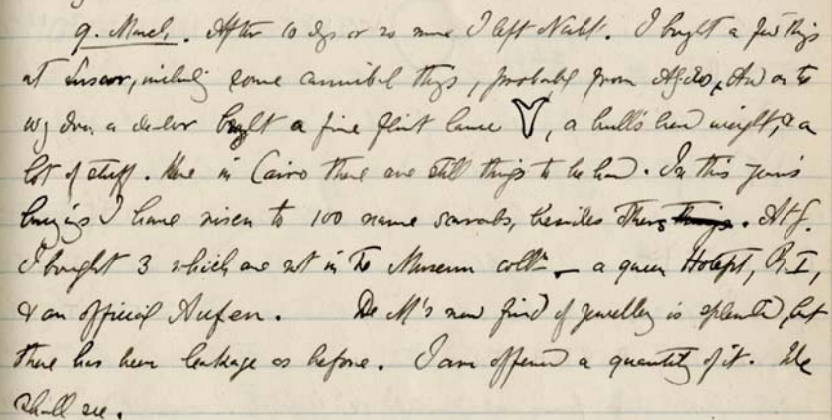 9. March. After 10 dys or so more I left Nakt. I bought a few things
at Luxor, includg some cannibal thgs, probably from Abydos, And on the
wy down a dealer bought a fine flint lance , a bull's head weight, & a
lot of stuff. Here in Cairo there are still things to be had. In this year's
buyings I have risen to 100 name scarabs, besides others things. At G.
I bought 3 which are not in the Museum colln - a queen Hotept, R. I,
& an official Aufen. De M's new find of jewellery is splendid, but
there has been leakage as before. I am offered a quantity of it. We
shall see.